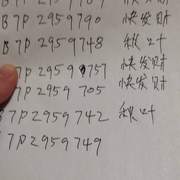 7P 2959 快发财
B7P 2959790 快发财
B7P 2959748 秋叶
7P 2959 757 快发财
7P 2959 705 快发财
7P 2959742 秋叶
7P 2959749